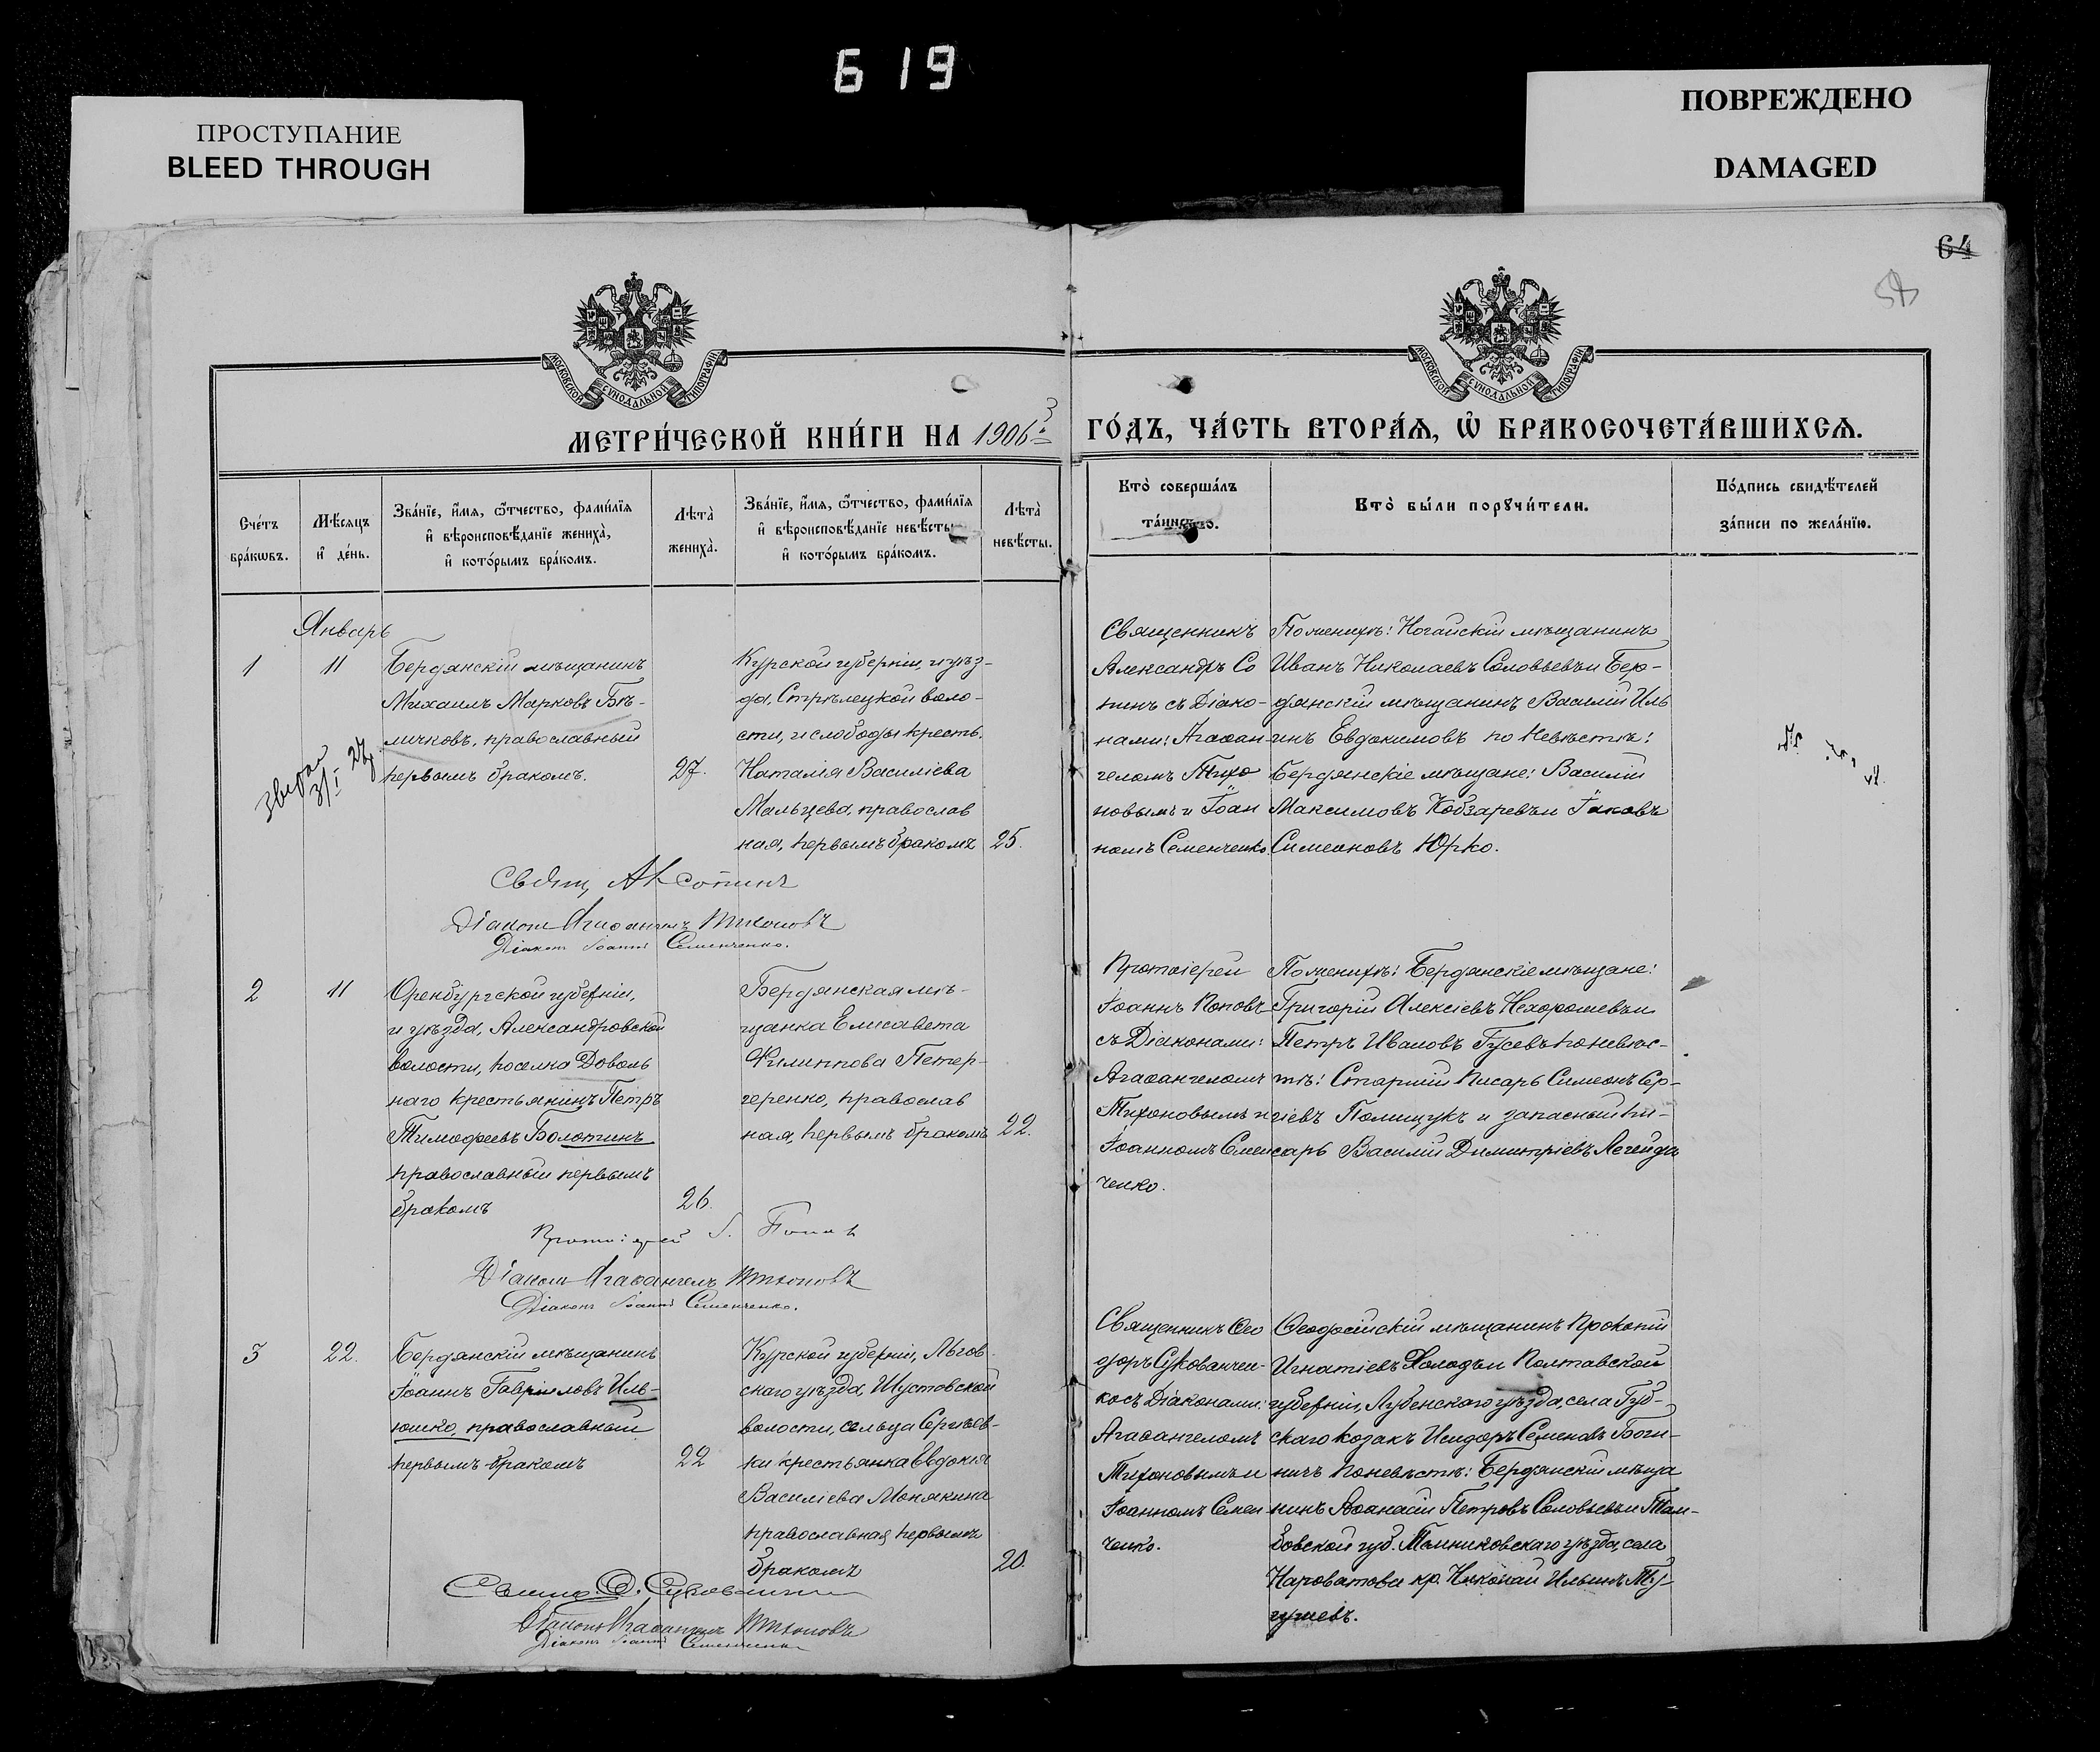 619
ПРОСТУПАНИЕ
BLEED THROUGH
ПОВРЕЖДЕНО
DAMAGED
64
МОСКОВСКОЙ СѴНОДАЛЬНОЙ ТИПОГРАФІИ
МОСКОВСКОЙ СѴНОДАЛЬНОЙ ТИПОГРАФІИ
МЕТРИ́ЧЕСКОЙ КНИ́ГИ НА 1906й
ГО́ДЪ, ЧА́СТЬ ВТОРА́Ѧ, Ѽ БРАКОСОЧЕТА́ВШИХСѦ.
Сче́тъ
бра́кѡвъ.
Мѣ́сяцъ
и҆ де́нь.
Зва́нїе, и҆́мя, ѻ҆́тчество, фами́лїя
и҆ вѣроисповѣ́данїе жениха̀,
и҆ кото́рымъ бра́комъ.
Лѣта̀
жениха̀.
Зва́нїе, и҆́мя, ѻ҆́тчество, фами́лїя
и҆ вѣроисповѣ́данїе невѣ́сты
и҆ кото́рымъ бра́комъ.
Лѣта̀
невѣ́сты.
Кто̀ соверша́лъ
та́инство.
Кто̀ бы́ли порꙋчи́тели.
По́дпись свидѣ́телей
за́писи по жела́нїю.
Январь
1
11
Бердянскій мѣщанинъ
Михаилъ Марковъ Бѣ-
личковъ, православный
первымъ бракомъ.
27.
Курской губерніи, и уѣз-
да, Стрѣлецкой воло-
сти, и слободы крест.
Наталія Василіева
Мальцева, православ
ная, первымъ бракомъ
25.
Священникъ
Александръ Со
нинъ съ Діако-
нами: Агаѳан
геломъ Тихо
новымъ и Іоан
номъ Семенченко.
По женихѣ: Ногайскій мѣщанинъ
Иванъ Николаевъ Соловьевъ и Бер-
дянскій мѣщанинъ Василій Иль
инъ Евдокимовъ по невѣстѣ:
Бердянскіе мѣщане: Василій
Максимовъ Кобзаревъ и Іаковъ
Симеоновъ Юрко.
Діаконъ Агаѳангелъ Тихоновъ
Діаконъ Іоаннъ Семенченко.
2
11
Оренбургской губерніи,
и уѣзда, Александровской
волости, поселка Доволь
наго крестьянинъ Петръ
Тимоѳеевъ Болотинъ
православный первымъ
бракомъ
26.
Бердянская мѣ-
щанка Елисавета
Филиппова Петер-
геренко, православ
ная, первымъ бракомъ
22.
Протоіерей
Іоаннъ Поповъ
съ Діаконами:
Агаѳангеломъ
Тихоновымъ и
Іоанномъ Семен
ченко.
По женихѣ: Бердянскіе мѣщане:
Григорій Алексіевъ Нехорошевъ и
Петръ Ивановъ Гусевъ по невѣс-
тѣ: Старшій писарь Симеонъ Сер-
гіевъ Полищукъ и запасный пи-
сарь Василій Димитріевъ Легейда
Протоіерей І. Поповъ
Діаконъ Агаѳангелъ Тихоновъ
Діаконъ Іоаннъ Семенченко.
3
22.
Бердянскій мѣщанинъ
Іоаннъ Гавріиловъ Иль-
юшко, православный
первымъ бракомъ
22
Курской губерніи, Льгов
скаго уѣзда, Шустовской
волости, сельца Сергѣев-
ки крестьянка Евдокія
Василіева Монякина
православная, первымъ
бракомъ
20.
Священникъ Ѳео
доръ Сукованчен-
ко съ Діаконами:
Агаѳангеломъ
Тихоновымъ и
Іоанномъ Семен
ченко.
Ѳеодосійскій мѣщанинъ Прокопій
Игнатіевъ Холодъ и Полтавской
губерніи, Лубенскаго уѣзда, села Губ-
скаго козакъ Исидоръ Семеновъ Боги-
ничъ по невѣстѣ: Бердянскій мѣща
нинъ Аѳанасій Петровъ Соловьевъ и Там-
бовской губ. Темниковскаго уѣзда, села
Нароватова кр. Николай Ильинъ Ту-
гушевъ.
Діаконъ Агаѳангелъ Тихоновъ
Діаконъ Іоаннъ Семенченко